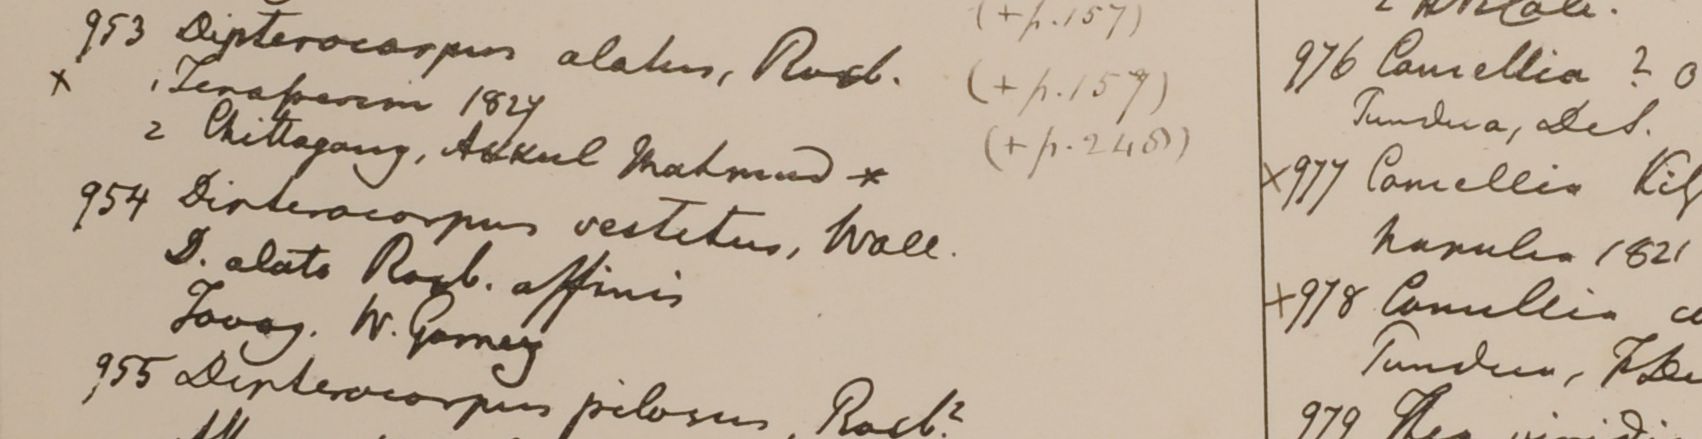 (+p.157)
953 Dipterocarpus alatus, Roxb. (+p.157)
x 1 Tenasserim 1827
2 Chittagong, Akkul Mahmud * (+p.248)
954 Dipterocarpus vestetus, Wall.
D. alato Roxb. affinis
Tavoy. W. Gomez
955 Dipterocarpus pilosus, Roxb?
976 Camellia ?
Tundua, DeS.
x977 Camellia Kis
Napulia 1821
x978 Camellia
Tundua,
979 Thea viridi